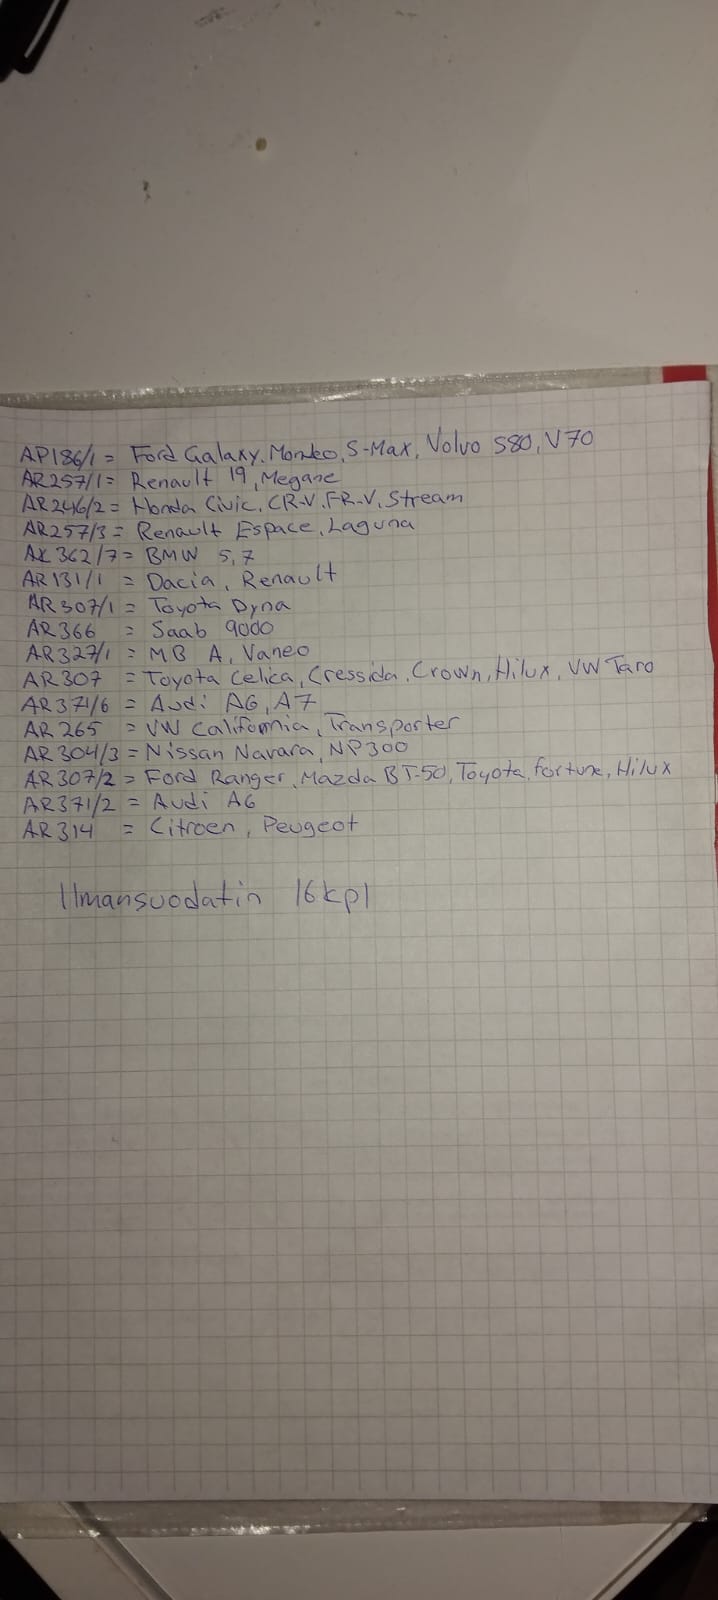 AP186/1 = Ford Galaxy, Mondeo, S-Max, Volvo S80, V70
AR257/1 = Renault 19, Megane
AR246/2 = Honda Civic, CR-V, FR-V, Stream
AR257/3 = Renault Espace, Laguna
AK362/7 = BMW 5,7
AR131/1 = Dacia, Renault
AR307/1 = Toyota Dyna
AR366 = Saab 9000
AR327/1 = MB A, Vaneo
AR307 = Toyota Celica, Cressida, Crown, Hilux, VW Taro
AR371/6 = Audi A6, A7
AR265 = VW California, Transporter
AR304/3 = Nissan Navara, NP300
AR307/2 = Ford Ranger, Mazda BT-50, Toyota, fortune, Hilux
AR371/2 = Audi A6
AR314 = Citroen, Peugeot
Ilmansuodatin 16kpl